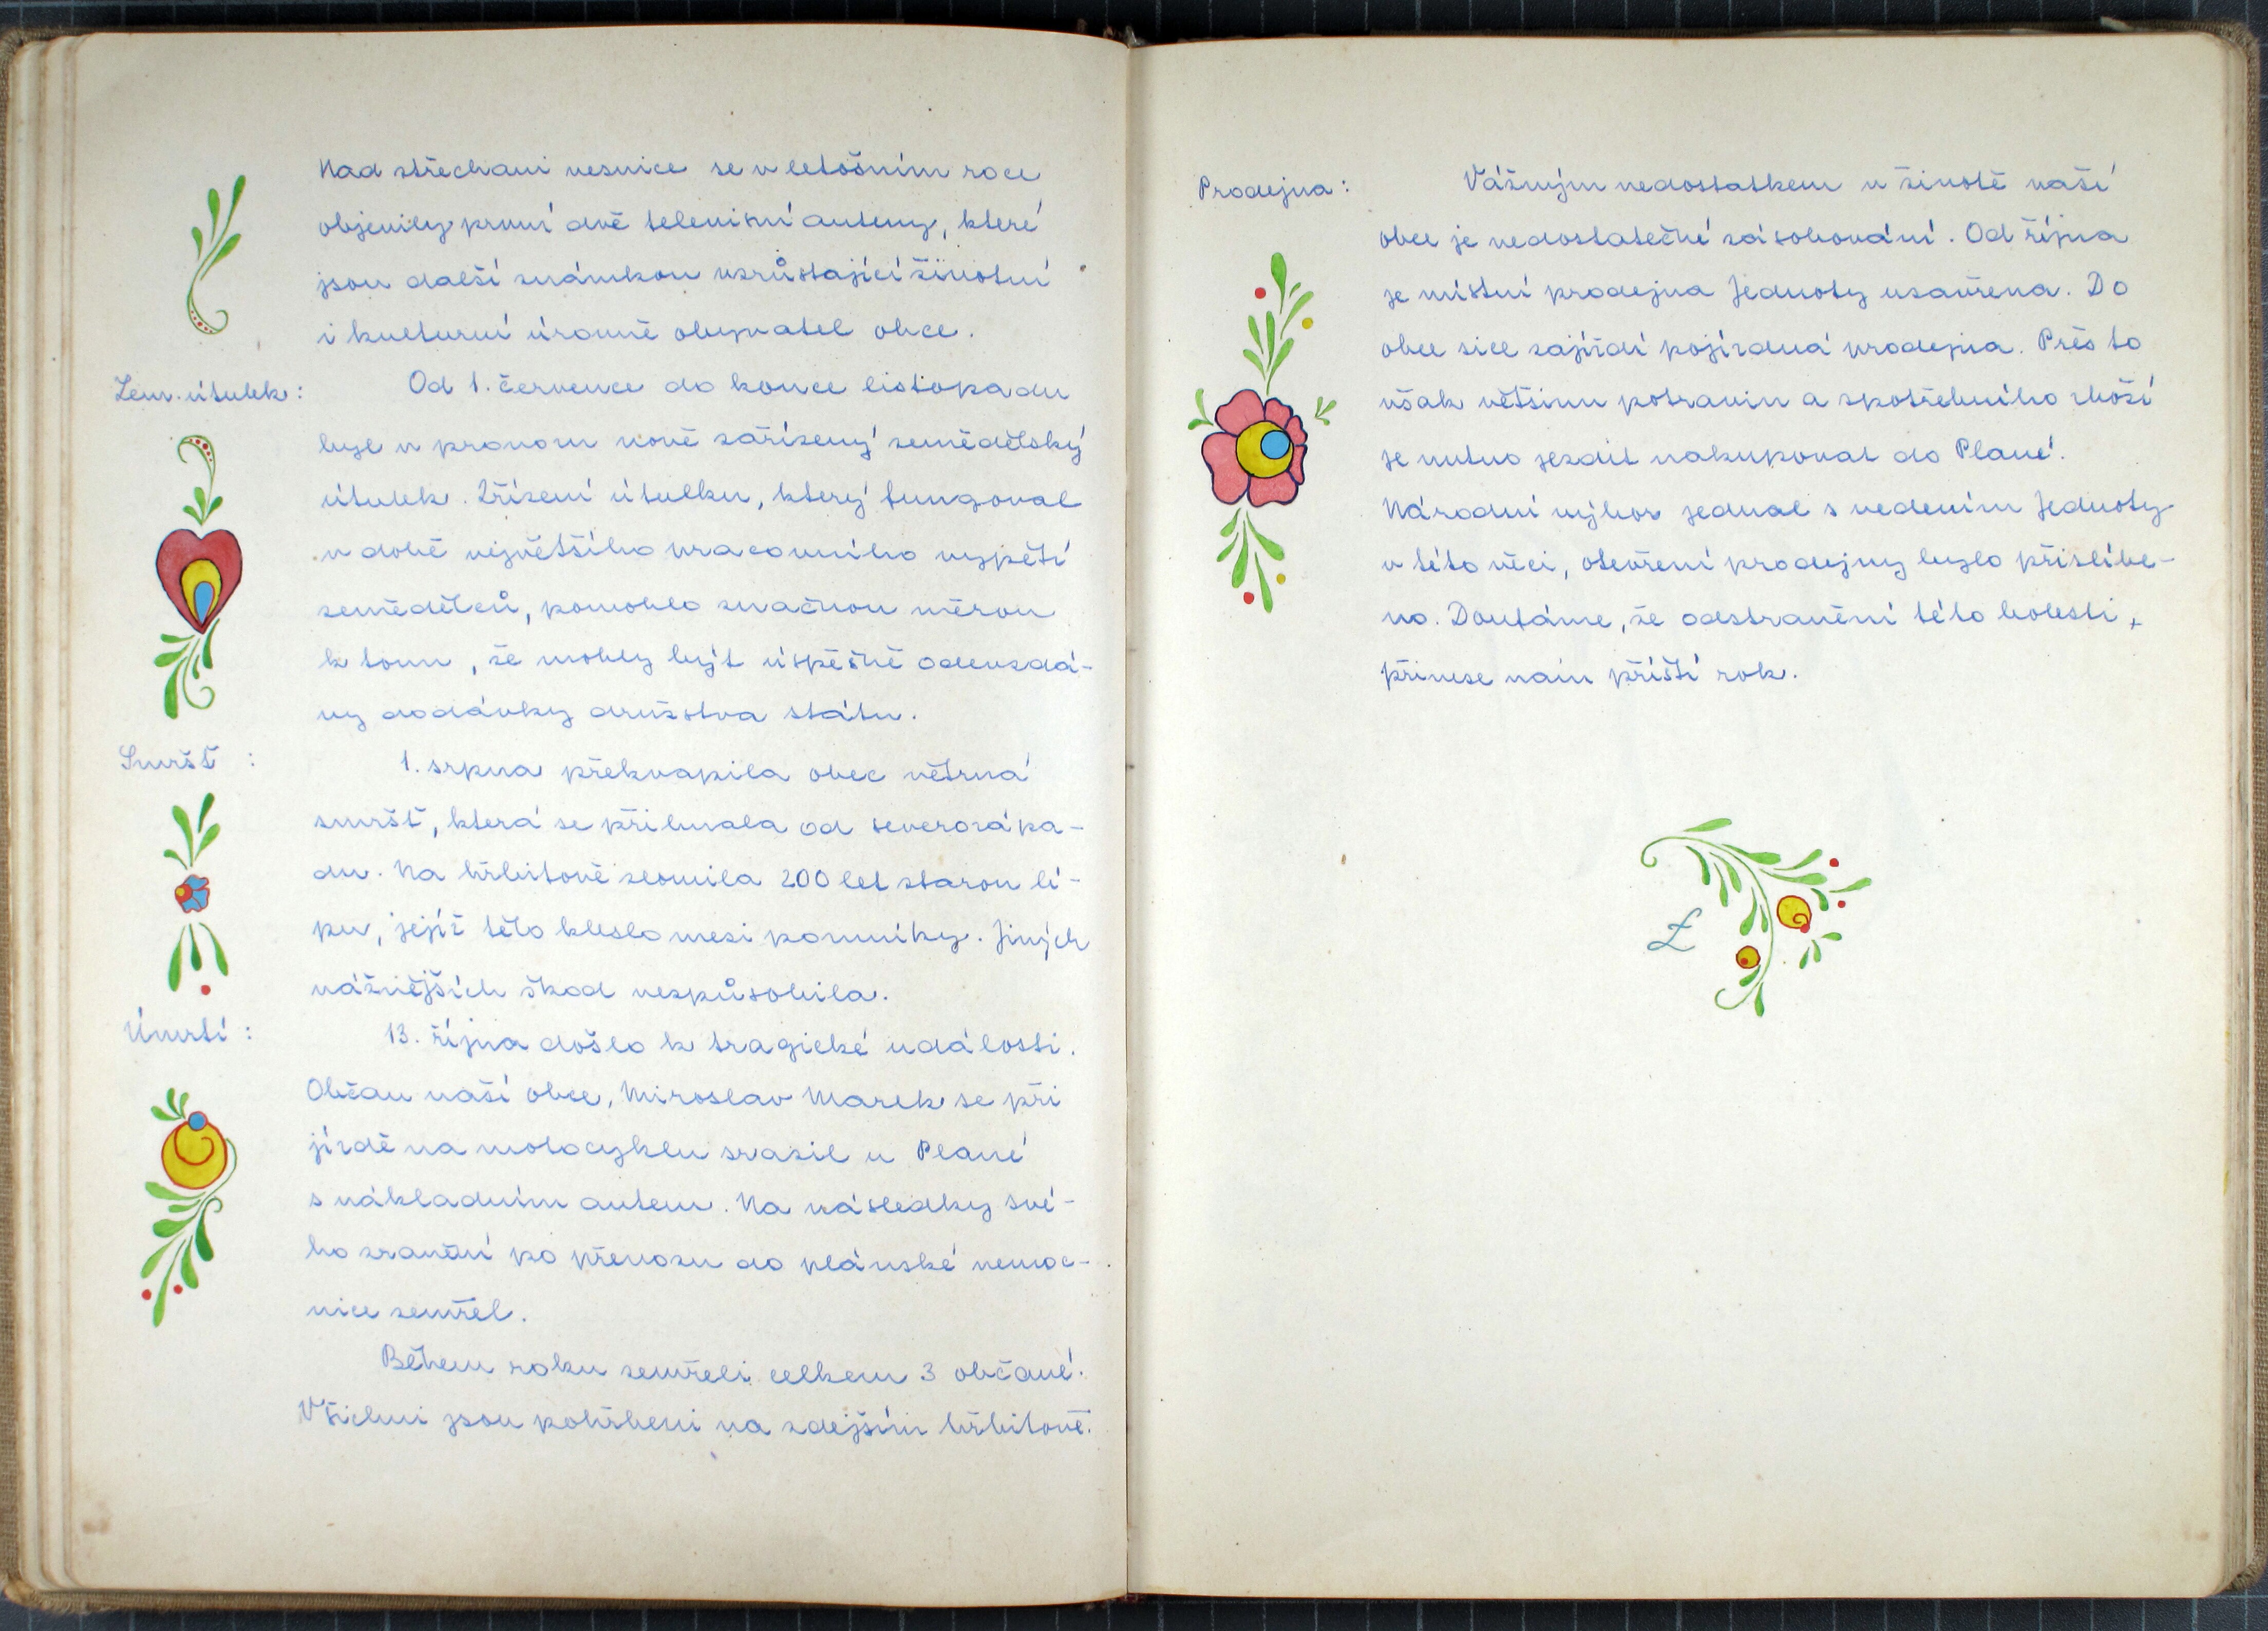 Nad střechami vesnice se v letošním roce
objevily první dvě televisní anteny, které
jsou další známkou vzrůstající životní
i kulturní úrovně obyvatel obce.
Zem. útulek:
Od 1. července do konce listopadu
byl v provozu nově zařízený zemědělský
útulek. Zřízení útulku, který fungoval
v době největšího pracovního vypětí
zemědělců, pomohlo značnou měrou
k tomu, že mohly být úspěšně odevzdá-
ny dodávky družstva státu.
Smršť :
1. srpna překvapila obec větrná
smršť, která se přihnala od severozápa-
du. Na hřbitově zlomila 200 let starou lí-
pu, jejíž tělo kleslo mezi pomníky. Jiných
vážnějších škod nezpůsobila.
Úmrtí :
13. října došlo k tragické události.
Občan naší obce, Miroslav Marek se při
jízdě na motocyklu srazil u Plané
s nákladním autem. Na následky své-
ho zranění po převozu do plánské nemoc-
nice zemřel.
Během roku zemřeli celkem 3 občané.
Všichni jsou pohřbeni na zdejším hřbitově.
Prodejna:
Vážným nedostatkem v životě naší
obce je nedostatečné zásobování. Od října
je místní prodejna Jednoty uzavřena. Do
obce sice zajíždí pojízdná prodejna. Přes to
však většinu potravin a spotřebního zboží
je nutno jezdit nakupovat do Plané.
Národní výbor jednal s vedením Jednoty
v této věci, otevření prodejny bylo přislíbe-
no. Doufáme, že odstranění této bolesti,
přinese nám příští rok.